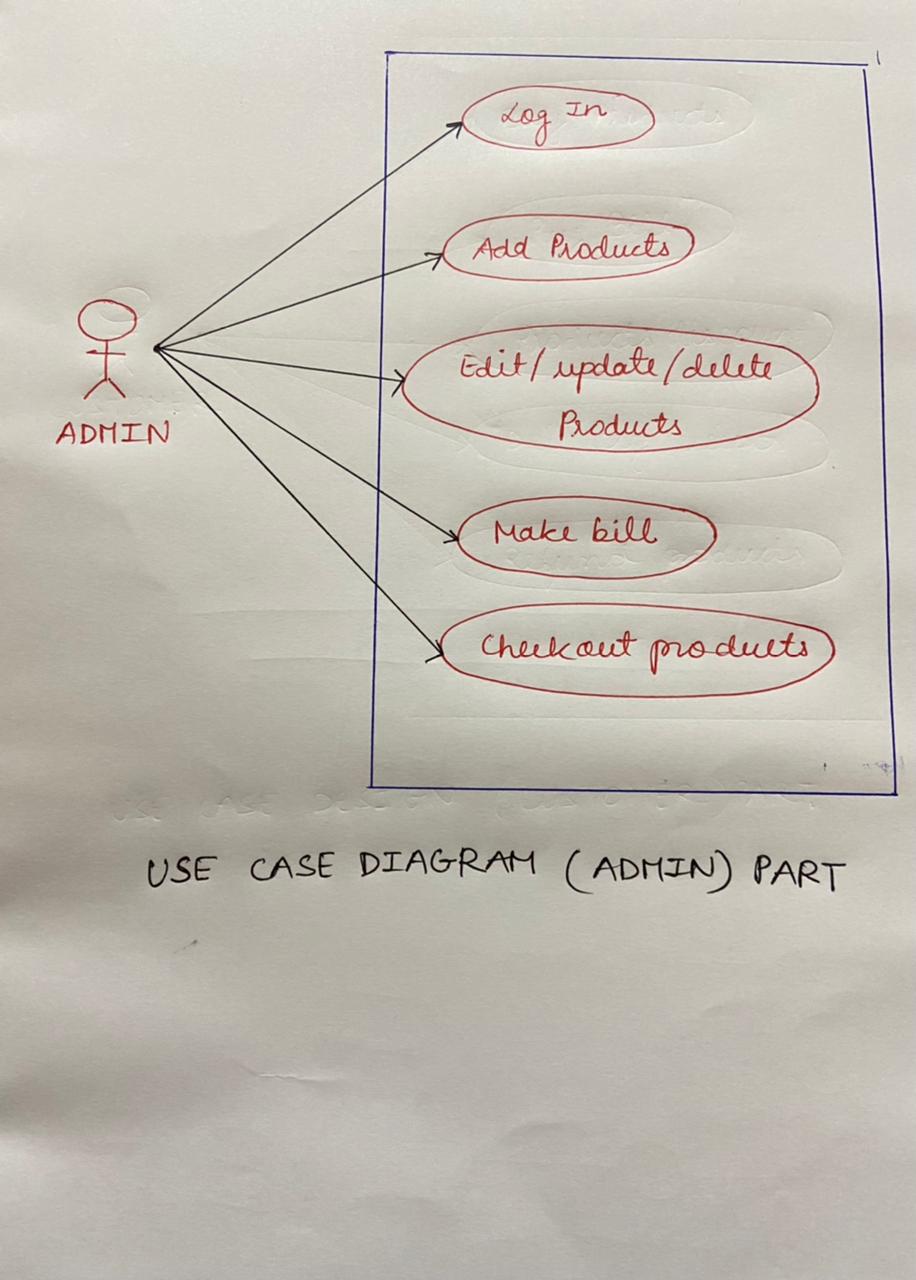 Log In
Add Products
Edit/update/delete
Products
ADMIN
Make bill
Checkout products
USE CASE DIAGRAM (ADMIN) PART